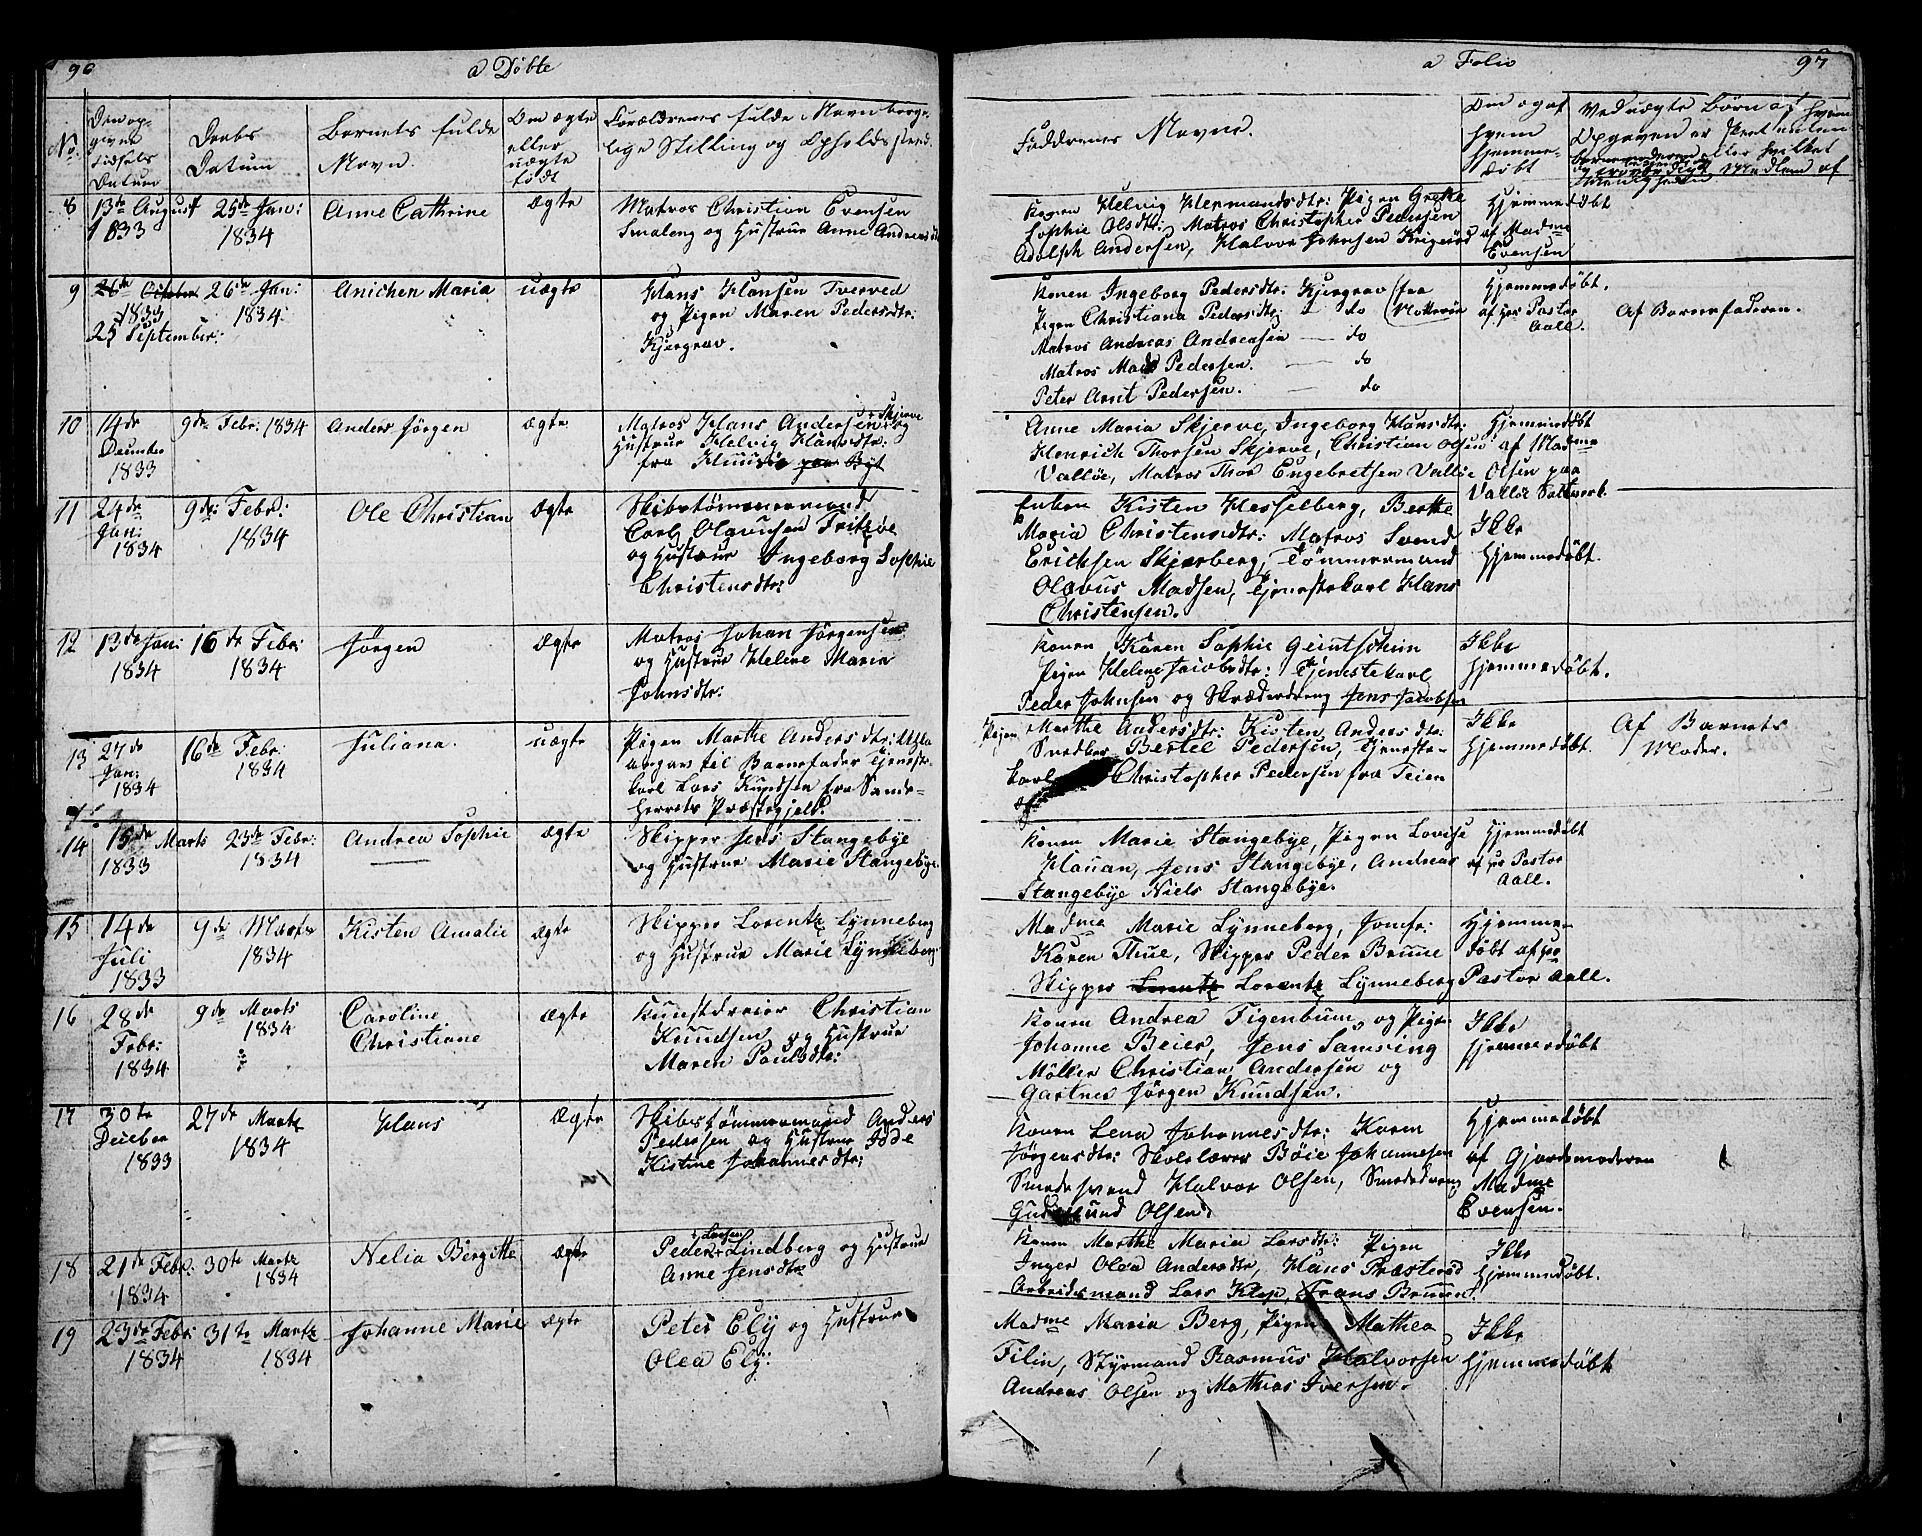 96
a Döbte
No:
Den op-
givne
Fødsels
Datum
Daabs
Datum
Barnets fulde
Navn.
Om ægte
eller
uægte
født
Forældrenes fulde Navn borger-
lige Stilling og Opholdssted.
8
13de August
1833
25de Jan:
1834
Anne Cathrine
Ægte
Matros Christian Evensen
Smaleng og Hustrue Anne Andreasdtr
9
26de October
1833
25 September:
26de Jan:
1834:
Anichen Maria
uægte
Hans Hansen Tverved
og Pigen Maren Pedersdtr:
Kjergrav.
10
14de
December
1833
9de Febr: 1834
Anders Jørgen
ægte
Matros Hans Andersen Skjerve
og
Hustrue Helvig Hansdtr:
fra
11
24de
Jan:
1834
9de: Febr:
1834
Ole Christian
Ægte
Skibstømmermand
Carl Olavesen Fritzøe
og Hustrue Ingeborg Sophie
Christensdtr:
12
13de Jan:
1834
16de Febr:
1834
Jörgen
Ægte
Matros Johan Jörgensen
og Hustrue Helene Maria
Johnsdtr:
13
27de
Jan:
1834
16de Febr:
1834
Juliana.
uægte
Pigen Marthe Andersdtr:
angav til Barnefader Tjeneste-
karl Lars Knudsen fra Sande-
herreds Præstegjeld.
14
15de Marts
1833
23de Febr:
1834
Andrea Sophie
Ægte
Skipper Jens Stangebye
og Hustrue Marie Stangebye.
15
14de
Juli
1833
9de Marts
1834
Kisten Amalie
Ægte
Skipper Lorentz Lynneberg
og Hustrue Marie Lynneberg
16
28de
Febr:
1834
9de Marts
1834
Caroline
Christiane
Ægte
Kunstdreier Christian
Knudsen og Hustrue
Maren Paulsdtr:
17
30te
Deceber
1833
27de Marts
1834
Hans
Ægte
Skibstømmermand Anders
Pedersen og Hustrue Idde
Kistine Johannesdtr:
18
21de Febr:
1834
30te Marts
1834
Nelia Bergitte
Ægte
Larsen
Peder Lindberg og Hustrue
Anne Jensdtr
19
23de Febr:
1834
31te Marts
1834
Johanne Marie
Ægte
Peter Ely og Hustrue
Olea Ely:
a Folio
97
Faddrenes Navne.
Om og af
hvem
hjemme-
døbt
Ved uægte Börn af hvem
Opgaven er skeet enten
barnemoderen eller hvilket
Medlem af
Konen Helvig Hermandsdtr: Pigen Grethe
Sophie Olsdtr: Matros Christopher Pedersen
Adolph Andersen, Halvor Johnsen Krigeröd
Hjemmedøbt
af Madme
Evensen
Konen Ingeborg Pedersdtr: Kjergrav (fra
Pigen Christiana Pedersdtr: do (Notterøe
Matros Andreas Andreasen — do
Matros Mads Pedersen. — do
Peter Arnt Pedersen. — do
Hjemmedøbt.
af Hr Pastor
Aall.
Af Barnefaderen.
Anne Maria Skjerve, Ingeborg Hansdtr:
Henrich Thorsen Skjerve, Christian Olsen
Valløe, Matros Thor Engebretsen Valløe
Hjemmedöbt
af Madme
Olsen paa
Valløe Saltverk.
Enken Kisten Hesselberg, Berthe
Maria Christensdtr: Matros Svend
Erichsen Skjerberg, Tømmermand
Olavus Madsen, Tjenestekarl Hans
Christensen.
Ikke
Hjemmedøbt.
Konen Karen Sophie
Pigen Helene Jacobsdtr: Tjenestekarl
Peder Johnsen og Skrædderdreng Jens Jacobsen
Ikke
Hjemmedøbt.
Pigen Marthe Andersdtr: Kisten Andersdtr:
Snedker Bertel Pedersen, Tjeneste-
karl Christopher Pedersen fra Teien
Ikke
Hjemmedøbt.
Af Barnets
Moder.
Konen Marie Stangebye, Pigen Lovise
Hauan, Jens Stangebye, Andreas
Stangebye Niels Stangebye.
Hjemmedøbt
af Hr Pastor
Aall.
Madme Marie Lynneberg, Jomfr:
Karen Thue, Skipper Peder Bruue
Skipper Lorentz Lorentz Lynneberg
Hjemme-
døbt af Hr
Pastor Aall.
Konen Andrea Figenbum, og Pige
Johanne Beier, Jens Samsing
Möller Christian Andersen og
Gartner Jörgen Knudsen.
Ikke
hjemmedøbt
Konen Lena Johannesdtr: Karen
Jörgensdtr: Skolelærer Böie Johannesen
Smedesvend Halvor Olsen, Smededreng
Gudmund Olsen.
Hjemmedøbt
af Gjordemoderen
Madme
Evensen.
Konen Marthe Maria Larsdtr: Pigen
Inger Olea Andersdtr, Hans Præsteröd
Arbeidsmand Lars Klop, Frans Bruun.
Ikke
Hjemmedøbt.
Madme Maria Berg, Pigen Mathea
Filin, Styrmand Rasmus Halvorsen
Andreas Olsen og Mathias Iversen.
Ikke
Hjemmedöbt